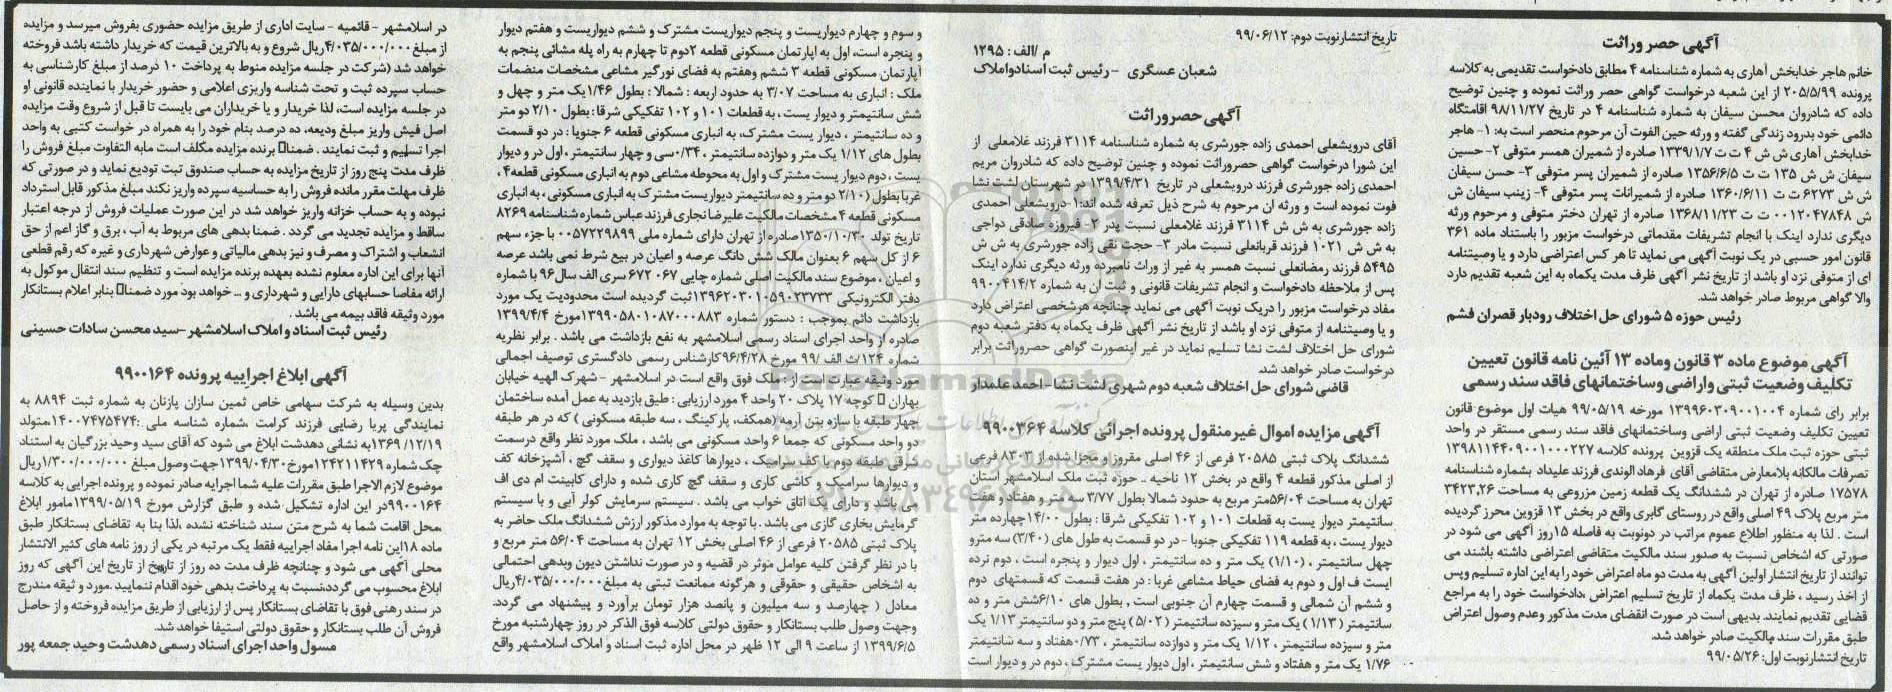 آگهی حصر وراثت
خانم هاجر خدابخش آهاری به شماره شناسنامه ۴ مطابق دادخواست تقدیمی به کلاسه
پرونده ۲۰۵/۵/۹۹ از این شعبه درخواست گواهی حصر وراثت نموده و چنین توضیح
داده که شادروان محسن سیفان به شماره شناسنامه ۴ در تاریخ ۹۸/۱۱/۲۷ اقامتگاه
دائمی خود بدرود زندگی گفته و ورثه حین الفوت آن مرحوم منحصر است به: ۱- هاجر
خدابخش آهاری ش ش ۴ ت ت ۱۳۳۹/۱/۷ صادره از شمیران همسر متوفی ۲- حسین
سیفان ش ش ۱۳۵ ت ت ۱۳۵۶/۶/۵ صادره از شمیران پسر متوفی ۳- حسن سیفان
ش ش ۶۲۷۳ ت ت ۱۳۶۰/۶/۱۱ صادره از شمیرانات پسر متوفی ۴- زینب سیفان ش
ش ۰۰۱۲۰۴۷۸۴۸ ت ت ۱۳۶۸/۱۱/۲۳ صادره از تهران دختر متوفی و مرحوم ورثه
دیگری ندارد اینک با انجام تشریفات مقدماتی درخواست مزبور را باستناد ماده ۳۶۱
قانون امور حسبی در یک نوبت آگهی می نماید تا هر کس اعتراضی دارد و یا وصیتنامه
ای از متوفی نزد او باشد از تاریخ نشر آگهی ظرف مدت یکماه به این شعبه تقدیم دارد
والا گواهی مربوط صادر خواهد شد.
رئیس حوزه ۵ شورای حل اختلاف رودبار قصران فشم
آگهی موضوع ماده ۳ قانون وماده ۱۳ آئین نامه قانون تعیین
تکلیف وضعیت ثبتی واراضی وساختمانهای فاقد سند رسمی
برابر رای شماره ۱۳۹۹۶۰۳۰۹۰۰۱۰۰۴ مورخه ۹۹/۰۵/۱۹ هیات اول موضوع قانون
تعیین تکلیف وضعیت ثبتی اراضی وساختمانهای فاقد سند رسمی مستقر در واحد
ثبتی حوزه ثبت ملک منطقه یک قزوین پرونده کلاسه ۱۳۹۸۱۱۴۴۰۹۰۰۱۰۰۰۲۲۷
تصرفات مالکانه بلامعارض متقاضی آقای فرهاد الوندی فرزند علیداد بشماره شناسنامه
۱۷۵۷۸ صادره از تهران در ششدانگ یک قطعه زمین مزروعی به مساحت ۳۴۲۳,۲۶
متر مربع پلاک ۴۹ اصلی واقع در روستای گابری واقع در بخش ۱۳ قزوین محرز گردیده
است . لذا به منظور اطلاع عموم مراتب در دونوبت به فاصله ۱۵روز آگهی می شود در
صورتی که اشخاص نسبت به صدور سند مالکیت متقاضی اعتراضی داشته باشند می
توانند از تاریخ انتشار اولین آگهی به مدت دو ماه اعتراض خود را به این اداره تسلیم وپس
از اخذ رسید ، ظرف مدت یکماه از تاریخ تسلیم اعتراض ،دادخواست خود را به مراجع
قضایی تقدیم نمایند. بدیهی است در صورت انقضای مدت مذکور وعدم وصول اعتراض
طبق مقررات سند مالکیت صادر خواهد شد.
تاریخ انتشارنوبت اول: ۹۹/۰۵/۲۶
تاریخ انتشارنوبت دوم: ۹۹/۰۶/۱۲
م /الف : ۱۲۹۵
شعبان عسگری – رئیس ثبت اسنادواملاک
آگهی حصر وراثت
آقای درویشعلی احمدی زاده جورشری به شماره شناسنامه ۳۱۱۴ فرزند غلامعلی از
این شورا درخواست گواهی حصروراثت نموده و چنین توضیح داده که شادروان مریم
احمدی زاده جورشری فرزند درویشعلی در تاریخ ۱۳۹۹/۴/۳۱ در شهرستان لشت نشا
فوت نموده است و ورثه ان مرحوم به شرح ذیل تعرفه شده اند:۱-درویشعلی احمدی
زاده جورشری به ش ش ۳۱۱۴ فرزند غلامعلی نسبت پدر ۲- فیروزه صادقی دواجی
به ش ش ۱۰۲۱ فرزند قربانعلی نسبت مادر ۳- حجت نقی زاده جورشری به ش ش
۵۴۹۵ فرزند رمضانعلی نسبت همسر به غیر از وراث نامبرده ورثه دیگری ندارد اینک
پس از ملاحظه دادخواست و انجام تشریفات قانونی و ثبت آن به شماره ۹۹۰۰۴۱۴/۲
مفاد درخواست مزبور را دریک نوبت آگهی می نماید چنانچه هرشخصی اعتراض دارد
و یا وصیتنامه از متوفی نزد او باشد از تاریخ نشر آگهی ظرف یکماه به دفتر شعبه دوم
شورای حل اختلاف لشت نشا تسلیم نماید در غیر اینصورت گواهی حصروراثت برابر
درخواست صادر خواهد شد.
قاضی شورای حل اختلاف شعبه دوم شهری لشت نشا - احمد علمدار
آگهی مزایده اموال غیرمنقول پرونده اجرائی کلاسه ۹۹۰۰۳۶۴
ششدانگ پلاک ثبتی ۲۰۵۸۵ فرعی از ۴۶ اصلی مفروز و مجزا شده از ۸۳۰۳ فرعی
از اصلی مذکور قطعه ۴ واقع در بخش ۱۲ ناحیه .. حوزه ثبت ملک اسلامشهر استان
تهران به مساحت ۵۶/۰۴متر مربع به حدود شمالا بطول ۳/۷۷ سه متر و هفتاد و هفت
سانتیمتر دیوار یست به قطعات ۱۰۱ و ۱۰۲ تفکیکی شرقا : بطول ۱۴/۰۰چهارده متر
دیوار یست ، به قطعه ۱۱۹ تفکیکی جنوبا - در دو قسمت به طول های (۳/۴۰) سه مترو
چهل سانتیمتر ، (۱/۱۰) یک متر و ده سانتیمتر ، اول دیوار و پنجره است ، دوم نرده
ایست ف اول و دوم به فضای حیاط مشاعی غربا : در هفت قسمت که قسمتهای دوم
و ششم آن شمالی و قسمت چهارم آن جنوبی است ، بطول های ۶/۱۰شش متر و ده
سانتیمتر (۱/۱۳) یک متر و سیزده سانتیمتر (۵/۰۲) پنج متر و دو سانتیمتر ۱/۱۳ یک
متر و سیزده سانتیمتر ، ۱/۱۲ یک متر و دوازده سانتیمتر ، ۰/۷۳هفتاد و سه سانتیمتر
۱/۷۶ یک متر و هفتاد و شش سانتیمتر ، اول دیوار یست مشترک ، دوم در و دیوار است
و سوم و چهارم دیواریست و پنجم دیواریست مشترک و ششم دیواریست و هفتم دیوار
و پنجره است، اول به اپارتمان مسکونی قطعه ۲دوم تا چهارم به راه پله مشائی پنجم به
آپارتمان مسکونی قطعه ۳ ششم وهفتم به فضای نورگیر مشاعی مشخصات منضمات
ملک : انباری به مساحت ۳/۰۷ به حدود اربعه : شمالا : بطول ۱/۴۶یک متر و چهل و
شش سانتیمتر و دیوار یست ، به قطعات ۱۰۱ و ۱۰۲ تفکیکی شرقا : بطول ۲/۱۰ دو متر
و ده سانتیمتر ، دیوار یست مشترک، به انباری مسکونی قطعه ۶ جنوبا : در دو قسمت
بطول های ۱/۱۲ یک متر و دوازده سانتیمتر ، ۰/۳۴سی و چهار سانتیمتر ، اول در و دیوار
یست ، دوم دیوار یست مشترک و اول به محوطه مشاعی دوم به انباری مسکونی قطعه۴ ،
غربا بطول (۲/۱۰ دو متر و ده سانتیمتر دیواریست مشترک به انباری مسکونی ، به انباری
مسکونی قطعه ۴ مشخصات مالکیت علیرضا نجاری فرزند عباس شماره شناسنامه ۸۲۶۹
تاریخ تولد ۱۳۵۰/۱۰/۳۰صادره از تهران دارای شماره ملی ۰۰۵۷۲۲۹۸۹۹ با جزء سهم
۶ از کل سهم ۶ بعنوان مالک شش دانگ عرصه و اعیان در بیع شرط نمی باشد عرصه
و اعیان ، موضوع سند مالکیت اصلی شماره چاپی ۶۷۲۰۶۷ سری الف سال۹۶ با شماره
دفتر الکترونیکی ۱۳۹۶۲۰۳۰۱۰۵۹۰۲۳۷۳۳ثبت گردیده است محدودیت یک مورد
بازداشت دائم بموجب : دستور شماره ۱۳۹۹۰۵۸۰۱۰۸۷۰۰۰۸۸۳مورخ ۱۳۹۹/۴/۴
صادره از واحد اجرای اسناد رسمی اسلامشهر به نفع بازداشت می باشد . برابر نظریه
شماره ۱۲۴/ث الف /۹۹ مورخ ۹۶/۴/۲۸کارشناس رسمی دادگستری توصیف اجمالی
مورد وثیقه عبارت است از : ملک فوق واقع است در اسلامشهر – شهرک الهیه خیابان
بهاران کوچه ۱۷ پلاک ۲۰ واحد ۴ مورد ارزیابی : طبق بازدید به عمل آمده ساختمان
چهار طبقه با سازه بتن آرمه (همکف، پارکینگ ، سه طبقه مسکونی ) که در هر طبقه
دو واحد مسکونی که جمعا ۶ واحد مسکونی می باشد ، ملک مورد نظر واقع درسمت
شرقی طبقه دوم با کف سرامیک ، دیوارها کاغذ دیواری و سقف گچ ، آشپزخانه کف
و دیوارها سرامیک و کاشی کاری و سقف گچ کاری شده و دارای کابینت ام دی اف
می باشد و دارای یک اتاق خواب می باشد . سیستم سرمایش کولر آبی و با سیستم
گرمایش بخاری گازی می باشد . با توجه به موارد مذکور ارزش ششدانگ ملک حاضر به
پلاک ثبتی ۲۰۵۸۵ فرعی از ۴۶ اصلی بخش ۱۲ تهران به مساحت ۵۶/۰۴ متر مربع و
با در نظر گرفتن کلیه عوامل موثر در قضیه و در صورت نداشتن دیون وبدهی احتمالی
به اشخاص حقیقی و حقوقی و هرگونه ممانعت ثبتی به مبلغ۴/۰۳۵/۰۰۰/۰۰۰ریال
معادل ( چهارصد و سه میلیون و پانصد هزار تومان برآورد و پیشنهاد می گردد.
وجهت وصول طلب بستانکار و حقوق دولتی کلاسه فوق الذکر در روز چهارشنبه مورخ
۱۳۹۹/۶/۵ از ساعت ۹ الی ۱۲ ظهر در محل اداره ثبت اسناد و املاک اسلامشهر واقع
در اسلامشهر – قائمیه – سایت اداری از طریق مزایده حضوری بفروش میرسد و مزایده
از مبلغ ۴/۰۳۵/۰۰۰/۰۰۰ریال شروع و به بالاترین قیمت که خریدار داشته باشد فروخته
خواهد شد (شرکت در جلسه مزایده منوط به پرداخت ۱۰ درصد از مبلغ کارشناسی به
حساب سپرده ثبت و تحت شناسه واریزی اعلامی و حضور خریدار با نماینده قانونی او
در جلسه مزایده است، لذا خریدار و یا خریداران می بایست تا قبل از شروع وقت مزایده
اصل فیش واریز مبلغ ودیعه، ده درصد بنام خود را به همراه در خواست کتبی به واحد
اجرا تسلیم و ثبت نمایند . ضمنا برنده مزایده مکلف است مابه التفاوت مبلغ فروش را
ظرف مدت پنج روز از تاریخ مزایده به حساب صندوق ثبت تودیع نماید و در صورتی که
ظرف مهلت مقرر مانده فروش را به حسابسیه سپرده واریز نکند مبلغ مذکور قابل استرداد
نبوده و به حساب خزانه واریز خواهد شد در این صورت عملیات فروش از درجه اعتبار
ساقط و مزایده تجدید می گردد . ضمنا بدهی های مربوط به آب ، برق و گاز اعم از حق
انشعاب و اشتراک و مصرف و نیز بدهی مالیاتی و عوارض شهرداری و غیره که رقم قطعی
آنها برای این اداره معلوم نشده بعهده برنده مزایده است و تنظیم سند انتقال موکول به
ارائه مفاصا حسابهای دارایی و شهرداری و ... خواهد بود مورد ضمنا بنابر اعلام بستانکار
مورد وثیقه فاقد بیمه می باشد .
رئیس ثبت اسناد و املاک اسلامشهر –سید محسن سادات حسینی
آگهی ابلاغ اجراییه پرونده ۹۹۰۰۱۶۴
بدین وسیله به شرکت سهامی خاص ثمین سازان پازنان به شماره ثبت ۸۸۹۴ به
نمایندگی پریا رضایی فرزند کرامت ،شماره شناسه ملی :۱۴۰۰۷۴۷۵۴۷۴،متولد
۱۳۶۹/۱۲/۱۹به نشانی دهدشت ابلاغ می شود که آقای سید وحید بزرگیان به استناد
چک شماره ۱۲۴۲۱۱۴۲۹مورخ۱۳۹۹/۰۴/۳۰جهت وصول مبلغ ۱/۳۰۰/۰۰۰/۰۰۰ریال
موضوع لازم الاجرا طبق مقررات علیه شما اجرایه صادر نموده و پرونده اجرایی به کلاسه
۹۹۰۰۱۶۴در این اداره تشکیل شده و طبق گزارش مورخ ۱۳۹۹/۰۵/۱۹مامور ابلاغ
،محل اقامت شما به شرح متن سند شناخته نشده ،لذا بنا به تقاضای بستانکار طبق
ماده ۱۸این نامه اجرا مفاد اجراییه فقط یک مرتبه در یکی از روز نامه های کثیر الانتشار
محلی آگهی می شود و چنانچه ظرف مدت ده روز از تاریخ از تاریخ این آگهی که روز
ابلاغ محسوب می گردد،نسبت به پرداخت بدهی خود اقدام ننمایید .مورد و ثیقه مندرج
در سند رهنی فوق با تقاضای بستانکار پس از ارزیابی از طریق مزایده فروخته و از حاصل
فروش آن طلب بستانکار و حقوق دولتی استیفا خواهد شد.
مسول واحد اجرای اسناد رسمی دهدشت وحید جمعه پور
ParsNamadData